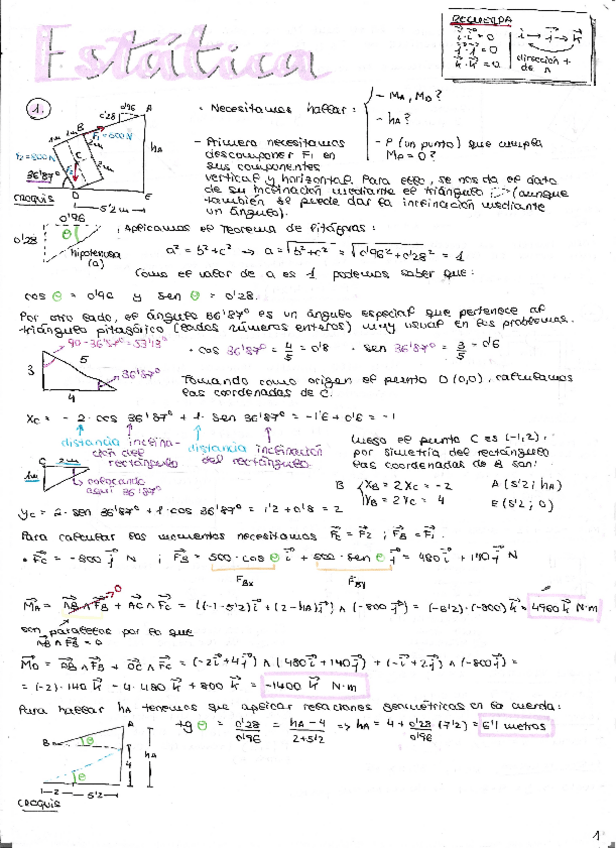 Estática
RECUERDA
i · i = 0
j · j = 0
k · k = 0
i → j → k
dirección +
de
1.
0'96
0'28
A
B
F₁ = 500 N
C
36'87º
D
E
hA
5'2 m
CROQUIS
· Necesitamos hallar:
- MA, MD?
- hA?
- P (un punto) que cumpla
MP = 0?
- Primero necesitamos
descomponer F₁ en
sus componentes
vertical y horizontal. Para ello, se nos da el dato
de su inclinación mediante el triángulo (aunque
también se puede dar la inclinación mediante
un ángulo).
0'96
0'28
θ
hipotenusa
(a)
Aplicamos el Teorema de Pitágoras:
a² = b² + c² → a = √b² + c² = √0'96² + 0'28² = 1
Como el valor de a es 1 podemos saber que:
cos θ = 0'96 y sen θ = 0'28.
Por otro lado, el ángulo 36'87º es un ángulo especial que pertenece al
triángulo pitagórico (lados números enteros) muy usual en los problemas.
90 - 36'87º = 53'13º
3
5
4
36'87º
· cos 36'87º = 4/5 = 0'8 · sen 36'87º = 3/5 = 0'6
Tomando como origen el punto D (0,0), calculamos
las coordenadas de C.
XC = - 2 · cos 36'87º + 1 · sen 36'87º = -1'6 + 0'6 = -1
distancia inclinación del rectángulo distancia inclinación del rectángulo
C 2m
1m
colocando
aquí 36'87º
Luego el punto C es (-1,2),
por simetría del rectángulo
las coordenadas de B son:
B { XB = 2XC = -2 A (5'2; hA)
YB = 2YC = 4 E (5'2; 0)
YC = 2 · sen 36'87º + 1 · cos 36'87º = 1'2 + 0'8 = 2
Para calcular los momentos necesitamos FC = F2 ; FB = F1.
· FC = -800 j N ; FB = 500 · cos θ i + 500 · sen θ j = 480 i + 140 j N
FBx FBy
MA = AB ∧ FB + AC ∧ FC = ((-1-5'2) i + (2-hA) j) ∧ (-800 j) = (-6'2) · (-800) k = 4960 k N·m
0
son paralelos por lo que
AB ∧ FB = 0
MD = DB ∧ FB + DC ∧ FC = (-2i + 4j) ∧ (480 i + 140 j) + (-i + 2j) ∧ (-800 j) =
= (-2) · 140 k - 4 · 480 k + 800 k = -1400 k N·m
Para hallar hA tenemos que aplicar relaciones geométricas en la cuerda:
tg θ = 0'28/0'96 = hA - 4/2 + 5'2 ⇒ hA = 4 + 0'28/0'96 (7'2) = 6'1 metros
A
B
θ
4
hA
θ
2
5'2
CROQUIS
1